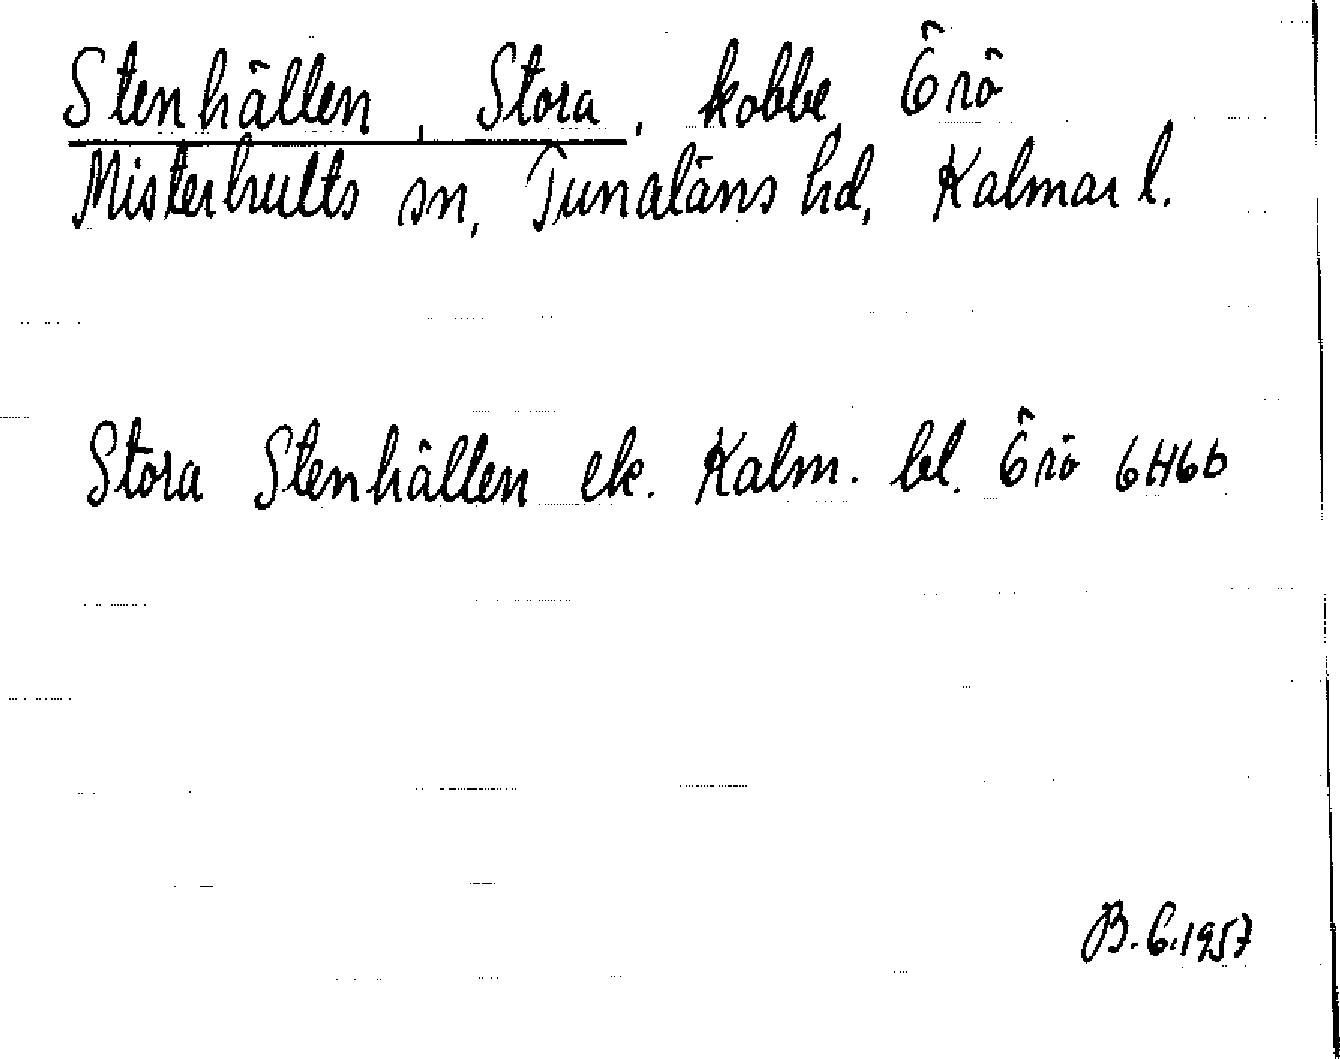 Stenhällen, Stora, kobbe, Örö
Misterhults sn, Tunaläns hd, Kalmar l.
Stora Stenhällen ek. Kalm. bl. Örö 6H6b
B. G. 1957